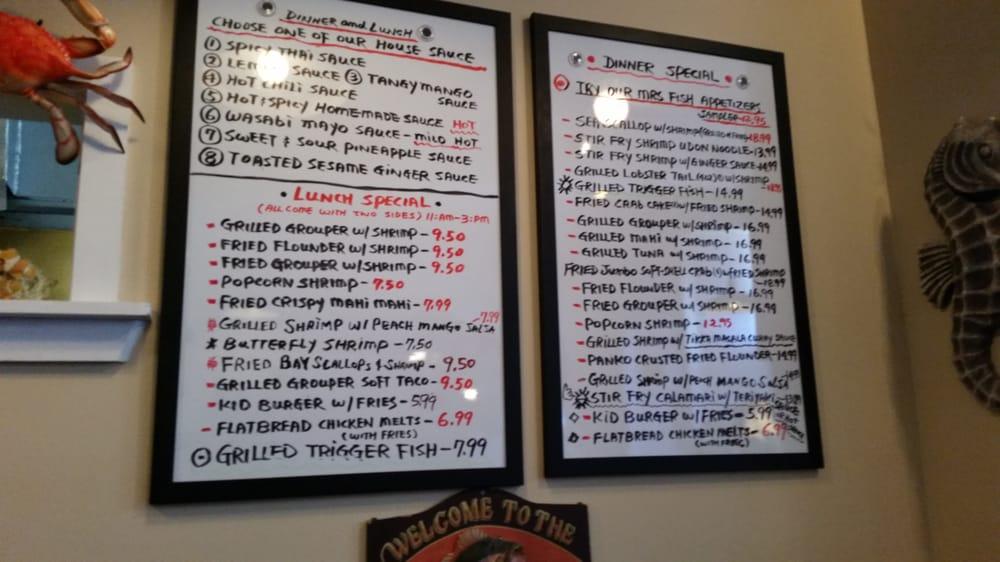 DINNER and LUNCH
CHOOSE ONE OF OUR HOUSE SAUCE
① SPICY THAI SAUCE
② SAUCE ③ TANGY MANGO SAUCE
④ HOT CHILI SAUCE
⑤ HOT & SPICY HOMEMADE SAUCE HOT
⑥ WASABI MAYO SAUCE - MILD HOT
⑦ SWEET & SOUR PINEAPPLE SAUCE
⑧ TOASTED SESAME GINGER SAUCE
• LUNCH SPECIAL •
(ALL COME WITH TWO SIDES) 11:AM-3:PM
- GRILLED GROUPER W/ SHRIMP - 9.50
- FRIED FLOUNDER W/ SHRIMP - 9.50
- FRIED GROUPER W/ SHRIMP - 9.50
- POPCORN SHRIMP - 7.50
- FRIED CRISPY MAHI MAHI - 7.99
GRILLED SHRIMP W/ PEACH MANGO SALSA -7.99
* BUTTERFLY SHRIMP - 7.50
FRIED BAY SCALLOPS & SHRIMP - 9.50
- GRILLED GROUPER SOFT TACO - 9.50
- KID BURGER W/ FRIES - 5.99
- FLATBREAD CHICKEN MELTS - 6.99
(WITH FRIES)
GRILLED TRIGGER FISH - 7.99
• DINNER SPECIAL •
TRY OUR MRS FISH APPETIZERS
SAMPLER - 12.95
- SEA SCALLOP W/ SHRIMP 18.99
- STIR FRY SHRIMP UDON NOODLE - 13.99
- STIR FRY SHRIMP W/ GINGER SAUCE - 14.99
- GRILLED LOBSTER TAIL W/ SHRIMP
GRILLED TRIGGER FISH - 14.99
- FRIED CRAB CAKE W/ FRIED SHRIMP - 14.99
- GRILLED GROUPER W/ SHRIMP - 16.99
- GRILLED MAHI W/ SHRIMP - 16.99
- GRILLED TUNA W/ SHRIMP - 16.99
FRIED JUMBO SOFT-SHELL CRAB (1) W/ FRIED SHRIMP
- FRIED FLOUNDER W/ SHRIMP - 16.99
- FRIED GROUPER W/ SHRIMP - 16.99
- POPCORN SHRIMP - 12.95
- GRILLED SHRIMP W/ TIKKA MASALA CURRY SAUCE
- PANKO CRUSTED FRIED FLOUNDER - 14.99
- GRILLED SHRIMP W/ PEACH MANGO SALSA
STIR FRY CALAMARI W/ TERIYAKI
- KID BURGER W/ FRIES - 5.99
- FLATBREAD CHICKEN MELTS - 6.99
(WITH FRIES)
WELCOME TO THE